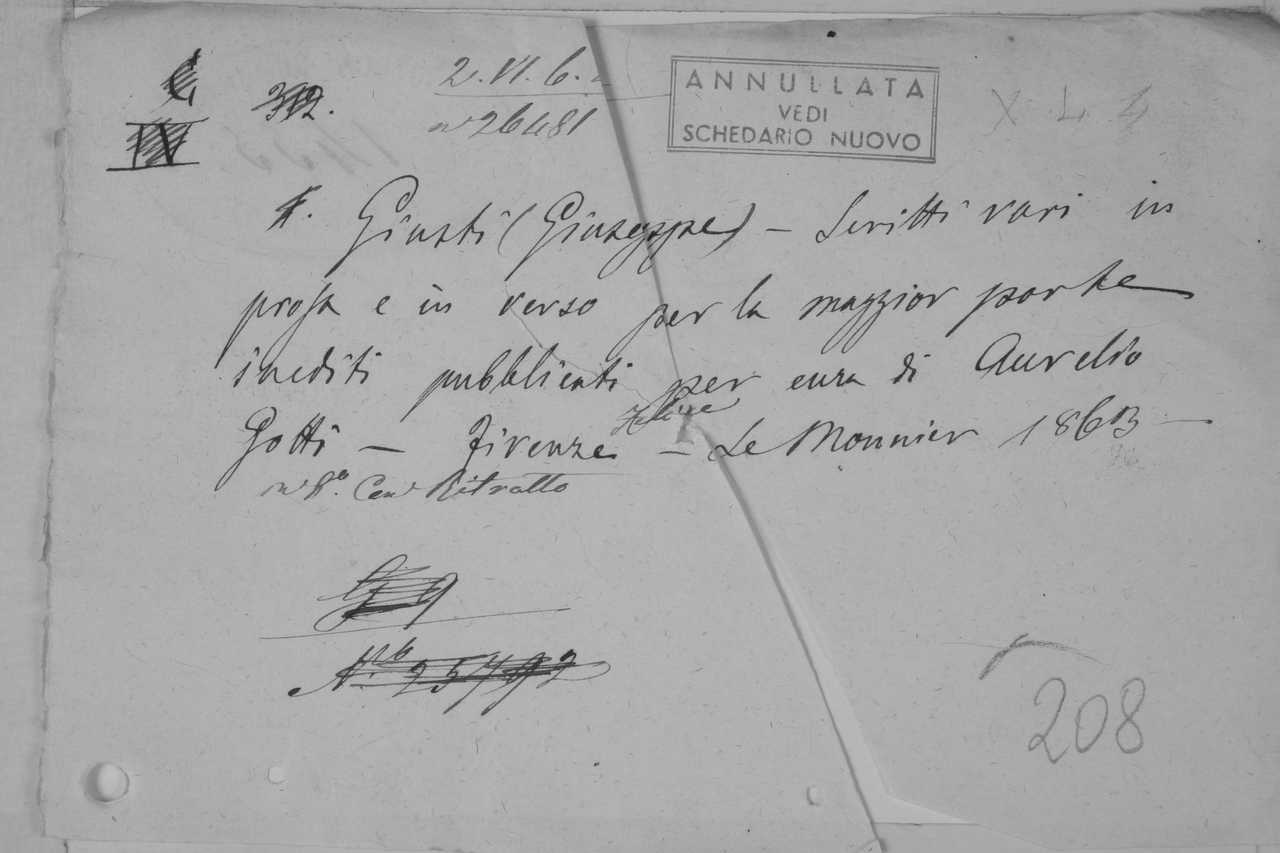 C
IV
312.
2. VI. 6.
nº 26481
ANNULLATA
VEDI
SCHEDARIO NUOVO
X L 4
Giusti (Giuseppe) – Scritti vari in
prosa e in verso per la maggior parte
inediti pubblicati per cura di Aurelio
Gotti – Firenze Felice – Le Monnier 1863 –
in 8º. Con Ritratto
Nº 25792
208